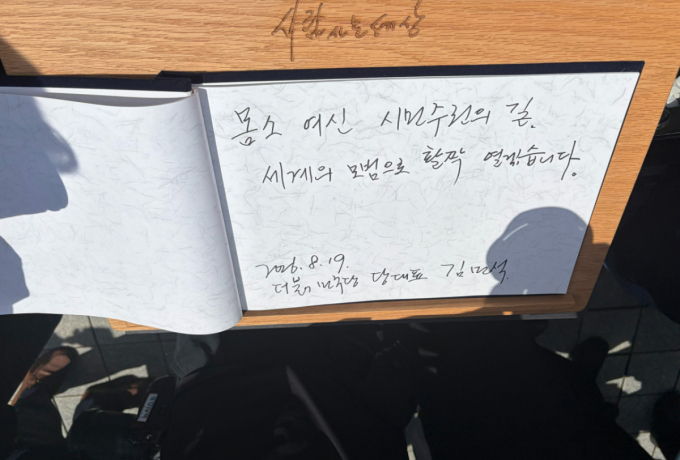 사람사는세상
몸소 여신 시민주권의 길.
세계의 모범으로 활짝 열겠습니다.
2026.8.19.
더불어민주당 당대표 김민석